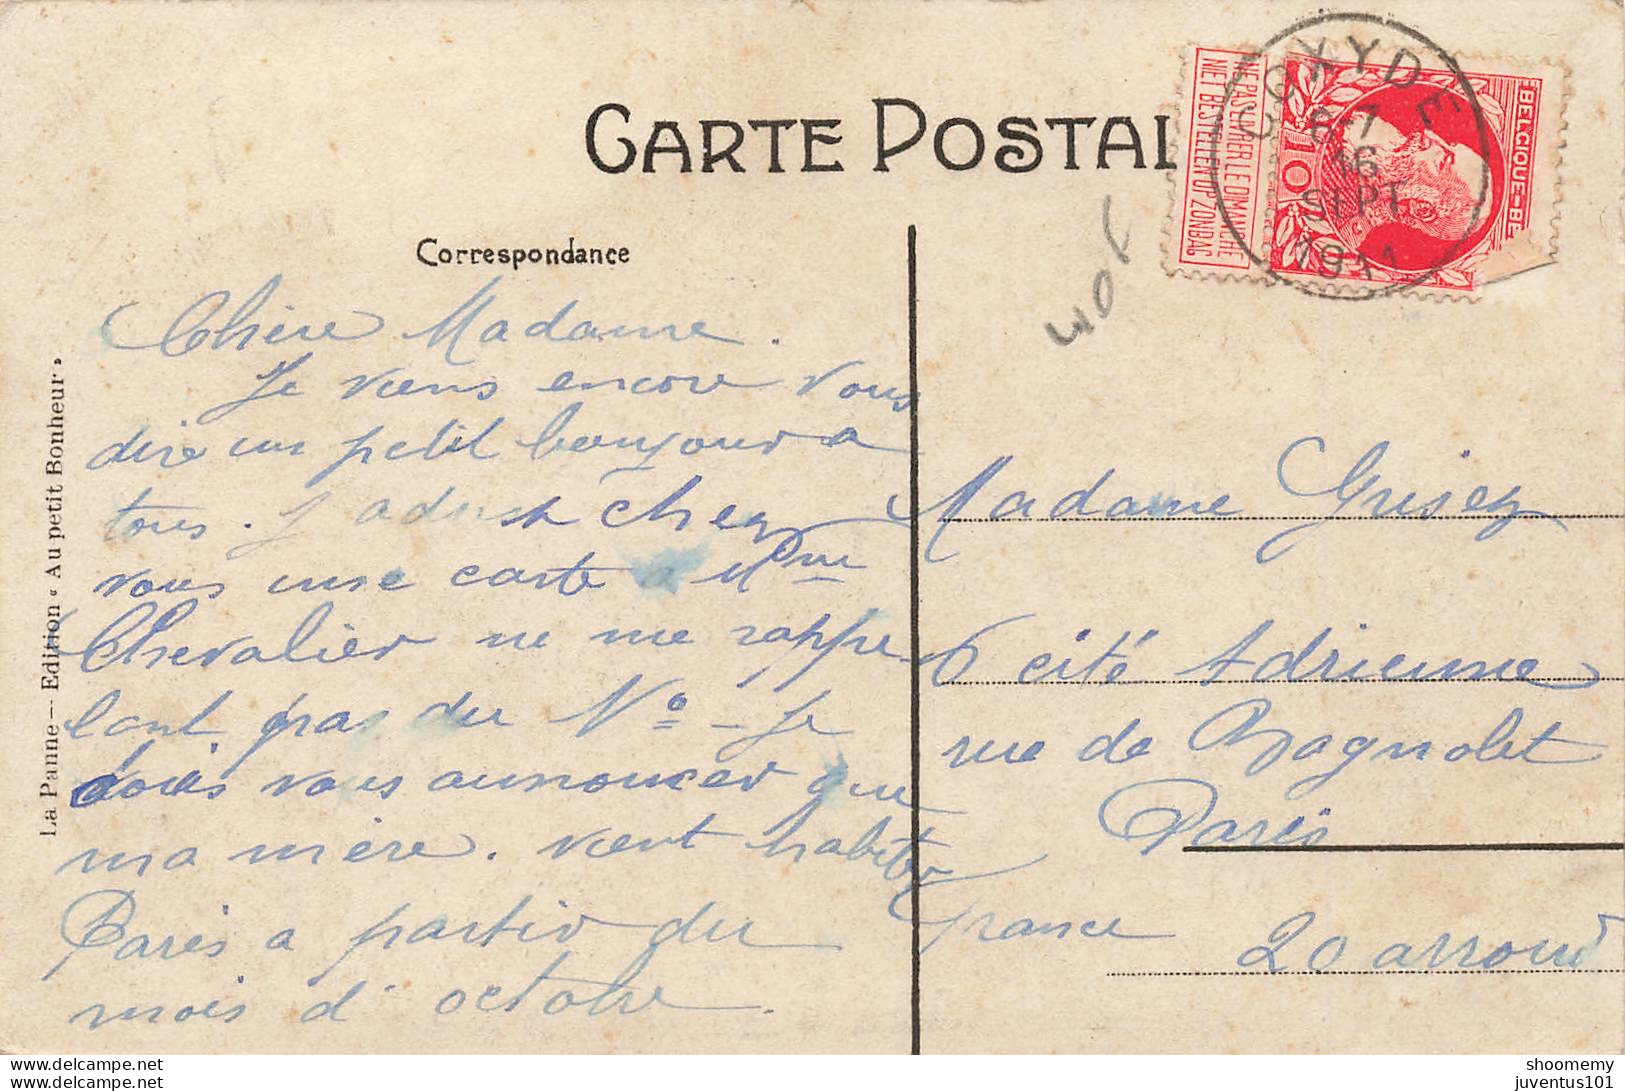 CARTE POSTAL
NE PAS LIVRER LE DIMANCHE
NIET BESTELLEN OP ZONDAG
10
BELGIQUE-BE
COXYDE
6-7
16
SEPT
1911
Correspondance
Chère Madame.
Je viens encore vous
dire un petit bonjour a
tous. J'adresse chez
vous une carte a Mme
Chevalier ne me rappe
lant pas du No - Je
dois vous annoncer que
ma mère. vient habiter
Paris a partir du
mois d'octobre.
Madame Grisez
6 cité Adrienne
rue de Bagnolet
Paris
France
20 arrond
La Panne — Edition « Au petit Bonheur »
www.delcampe.net
www.delcampe.net
shoomemy
juventus101